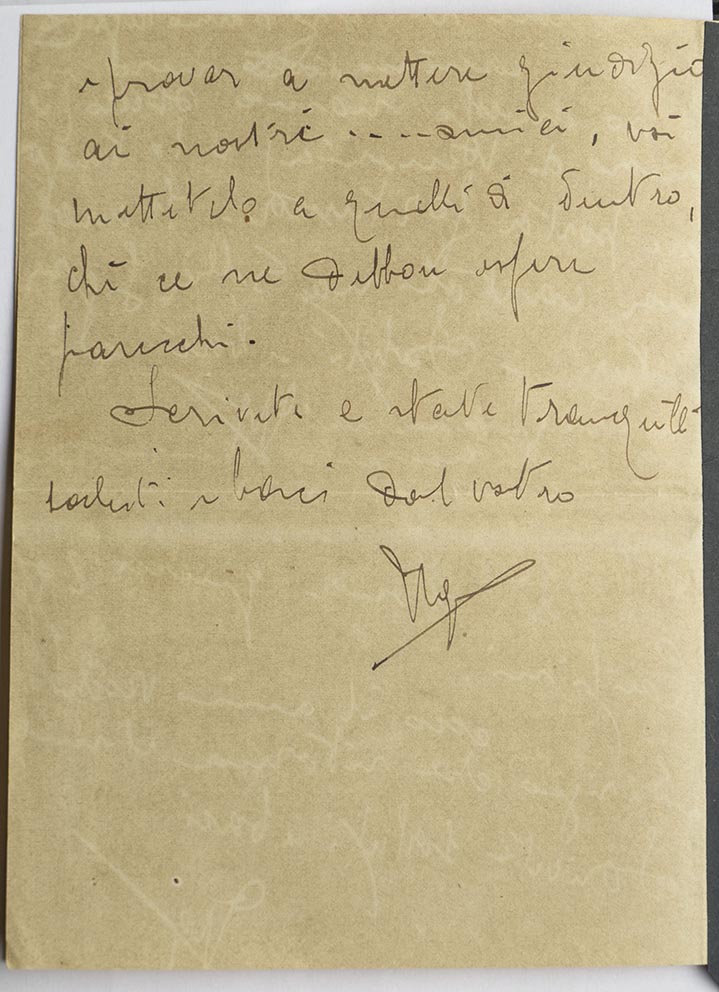 e provar a mettere giudizio
ai nostri .....amici, voi
mettetelo a quelli di dentro,
chè ce ne debbon essere
parecchi.
Scrivete e state tranquilli
saluti e baci dal vostro